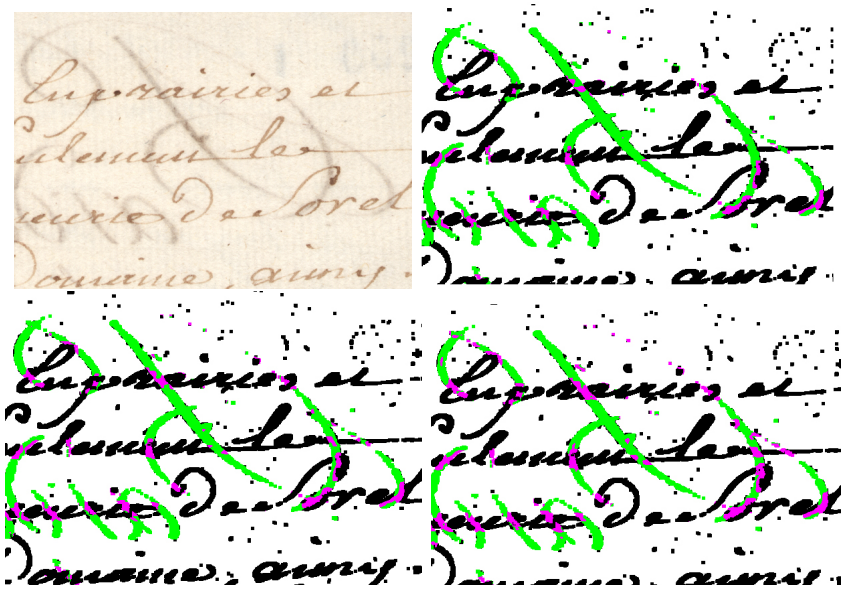 Enprairies et
ulement les
neurie de Sorel
Domaine, ainsy.
Enprairies et
ulement les
neurie de Sorel
Domaine, ainsy.
Enprairies et
ulement les
neurie de Sorel
Domaine, ainsy.
Enprairies et
ulement les
neurie de Sorel
Domaine, ainsy.